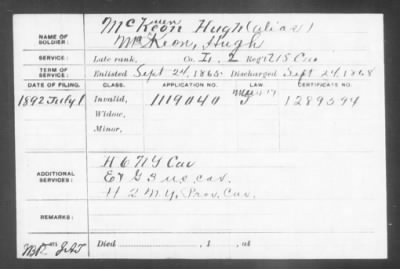 McKeon Hugh (alias)
NAME OF SOLDIER: McKeon, Hugh
SERVICE: Late rank, Co. H, 2 Reg't US Cav
TERM OF SERVICE: Enlisted Sept 24, 1865 Discharged Sept 24, 1868
DATE OF FILING. CLASS. APPLICATION NO. LAW. CERTIFICATE NO.
1892 July 1 Invalid, 1119040 1289594
Widow,
Minor,
ADDITIONAL SERVICES:
H 6 NY Cav
G 3 cav.
H 2 N.Y. Prov. Cav.
REMARKS:
Died , 1 , at